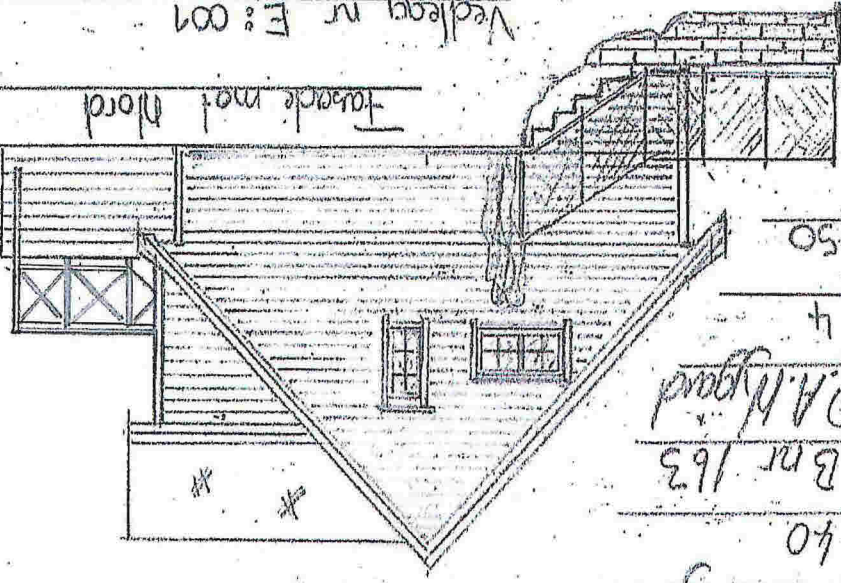 40
Bnr 163
Nygård
4
50
Fasade mot Nord
Vedlegg nr E: 001